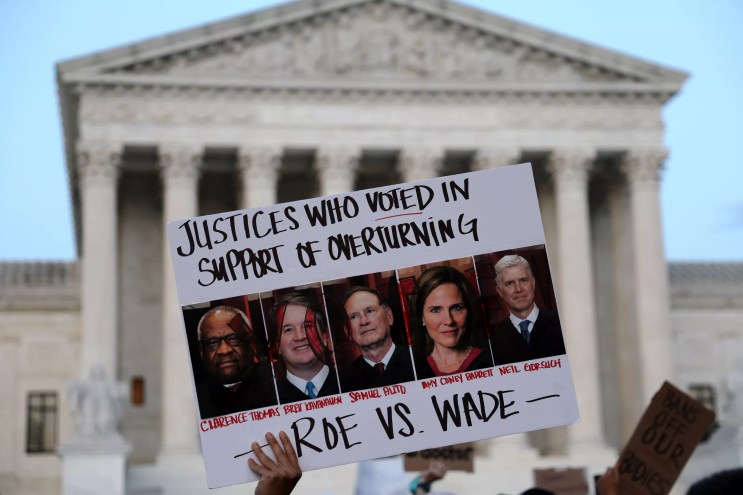 JUSTICES WHO VOTED IN
SUPPORT OF OVERTURNING
CLARENCE THOMAS BRET KAVANAUGH SAMUEL ALITO AMY CONEY BARRETT NEIL GORSUCH
- ROE VS. WADE -
BANS OFF
OUR
BODIES